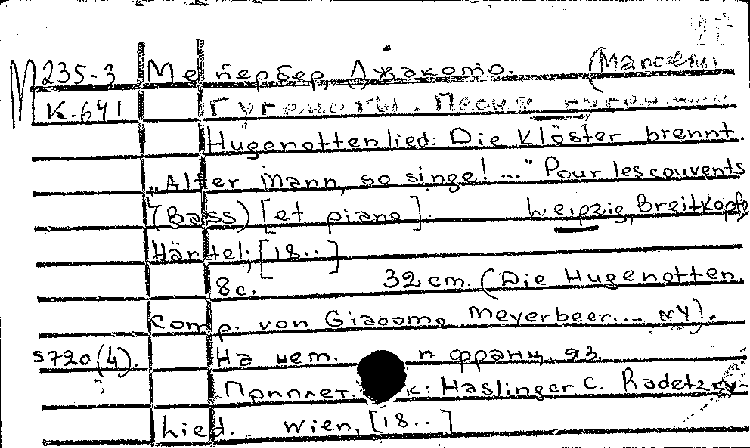 М 235-3 Мейербер, Джакомо. (Marcelens
К-641 Гугеноты. Песня
Hugenottenlied: Die Klöster brennt.
„Alter Mann, so singe!..." Pour les couvents
(Bass) [et piano]. Leipzig, Breitkopf
Härtel; [18..]
8 с. 32 cm. (Die Hugenotten
comp. von Giacomo Meyerbeer... N4).
5720(4). На нем. и франц. яз.
Приплет. к: Haslinger C. Radetzky-
Lied. Wien, [18..]